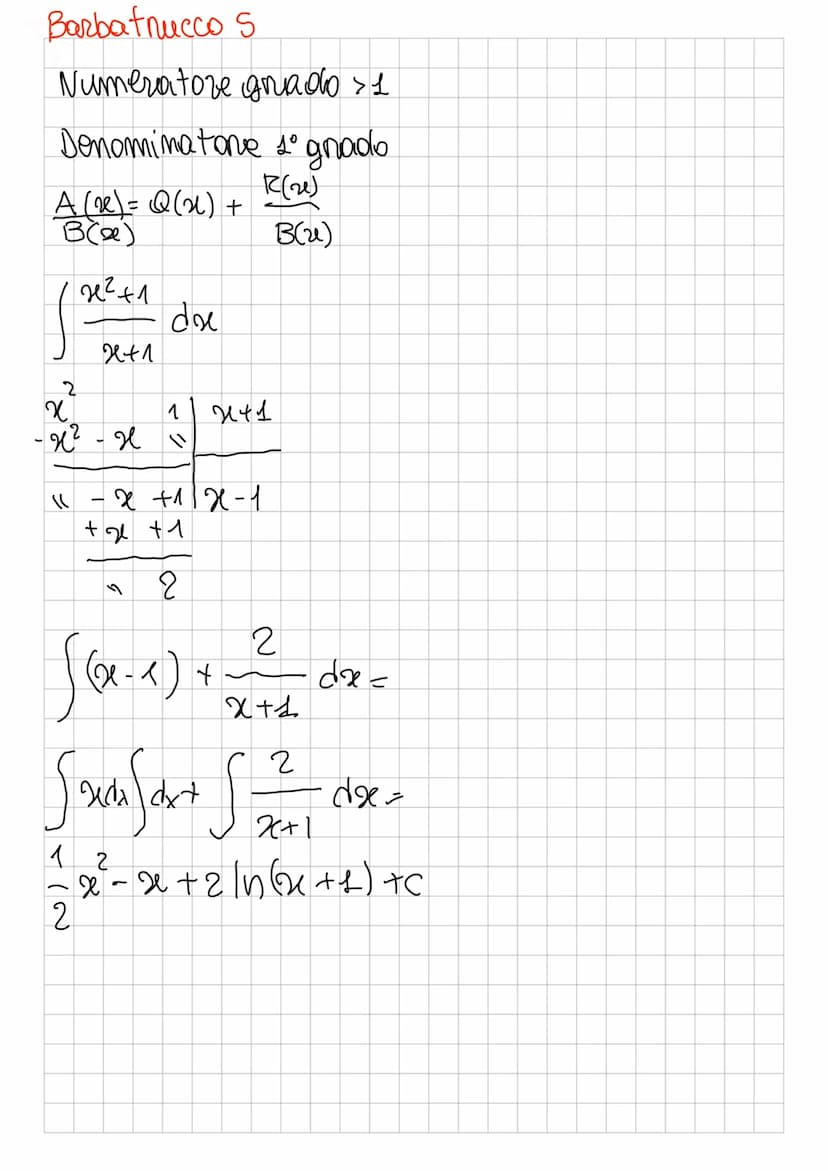 Barbatrucco 5
Numeratore grado >1
Denominatore 1° grado
A(x)/B(x) = Q(x) + R(x)/B(x)
∫ x²+1/x+1 dx
x² 1 | x+1
-x² - x " |
" - x +1 | x-1
+x +1
" 2
∫(x-1) + 2/x+1 dx =
∫xdx∫dx+ ∫ 2/x+1 dx =
1/2 x² - x + 2 ln(x+1) +c